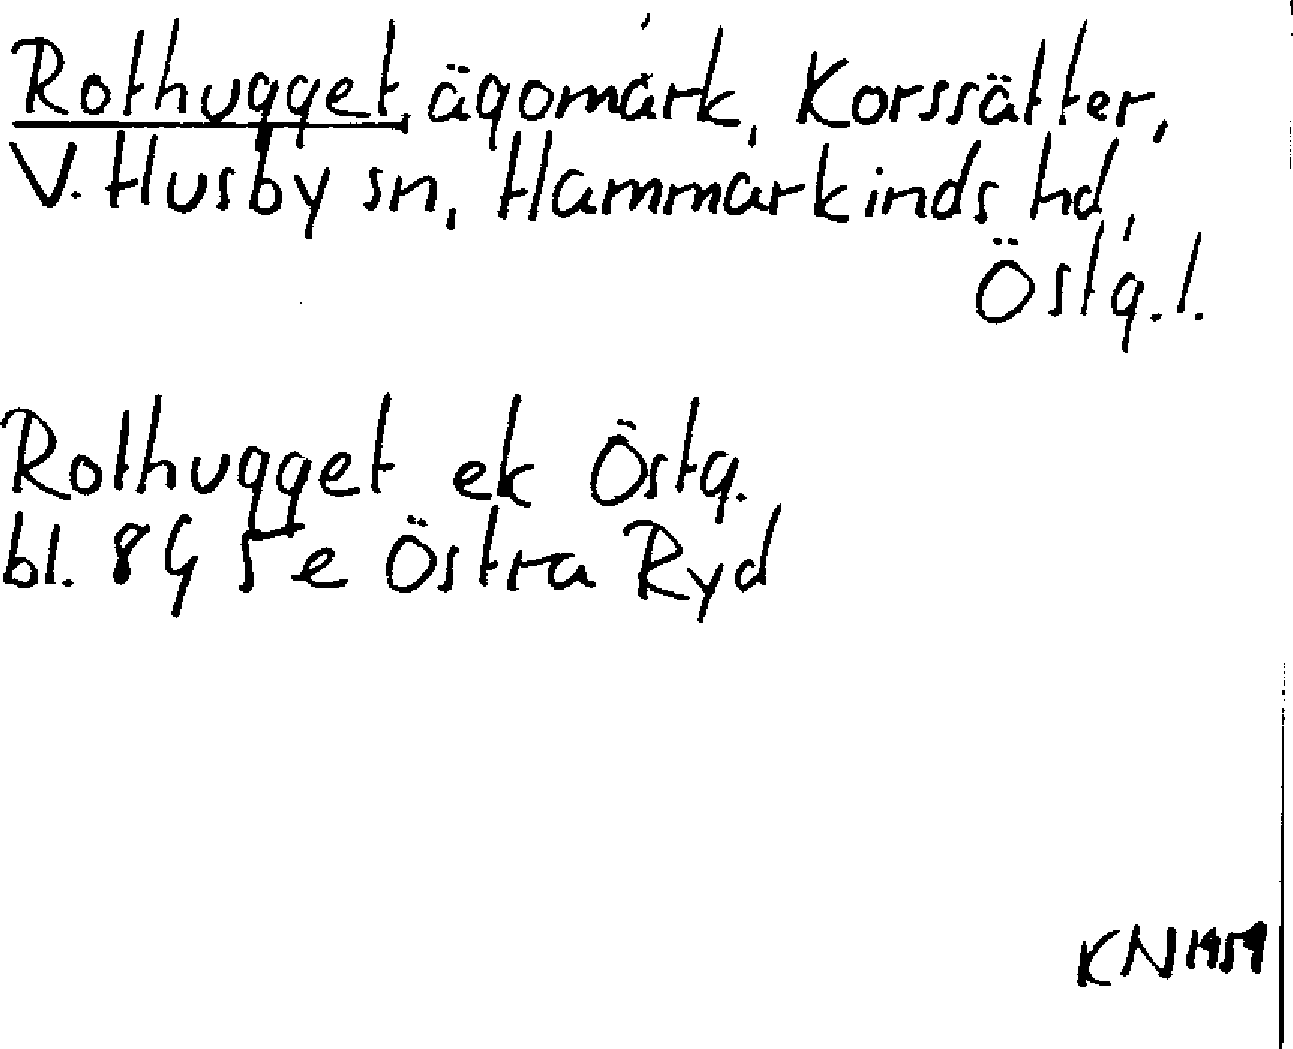 Rothugget, ägomark, Korssätter,
V. Husby sn, Hammarkinds hd,
Östg.l.
Rothugget ek Östg.
bl. 8G 5e Östra Ryd
KN 1959